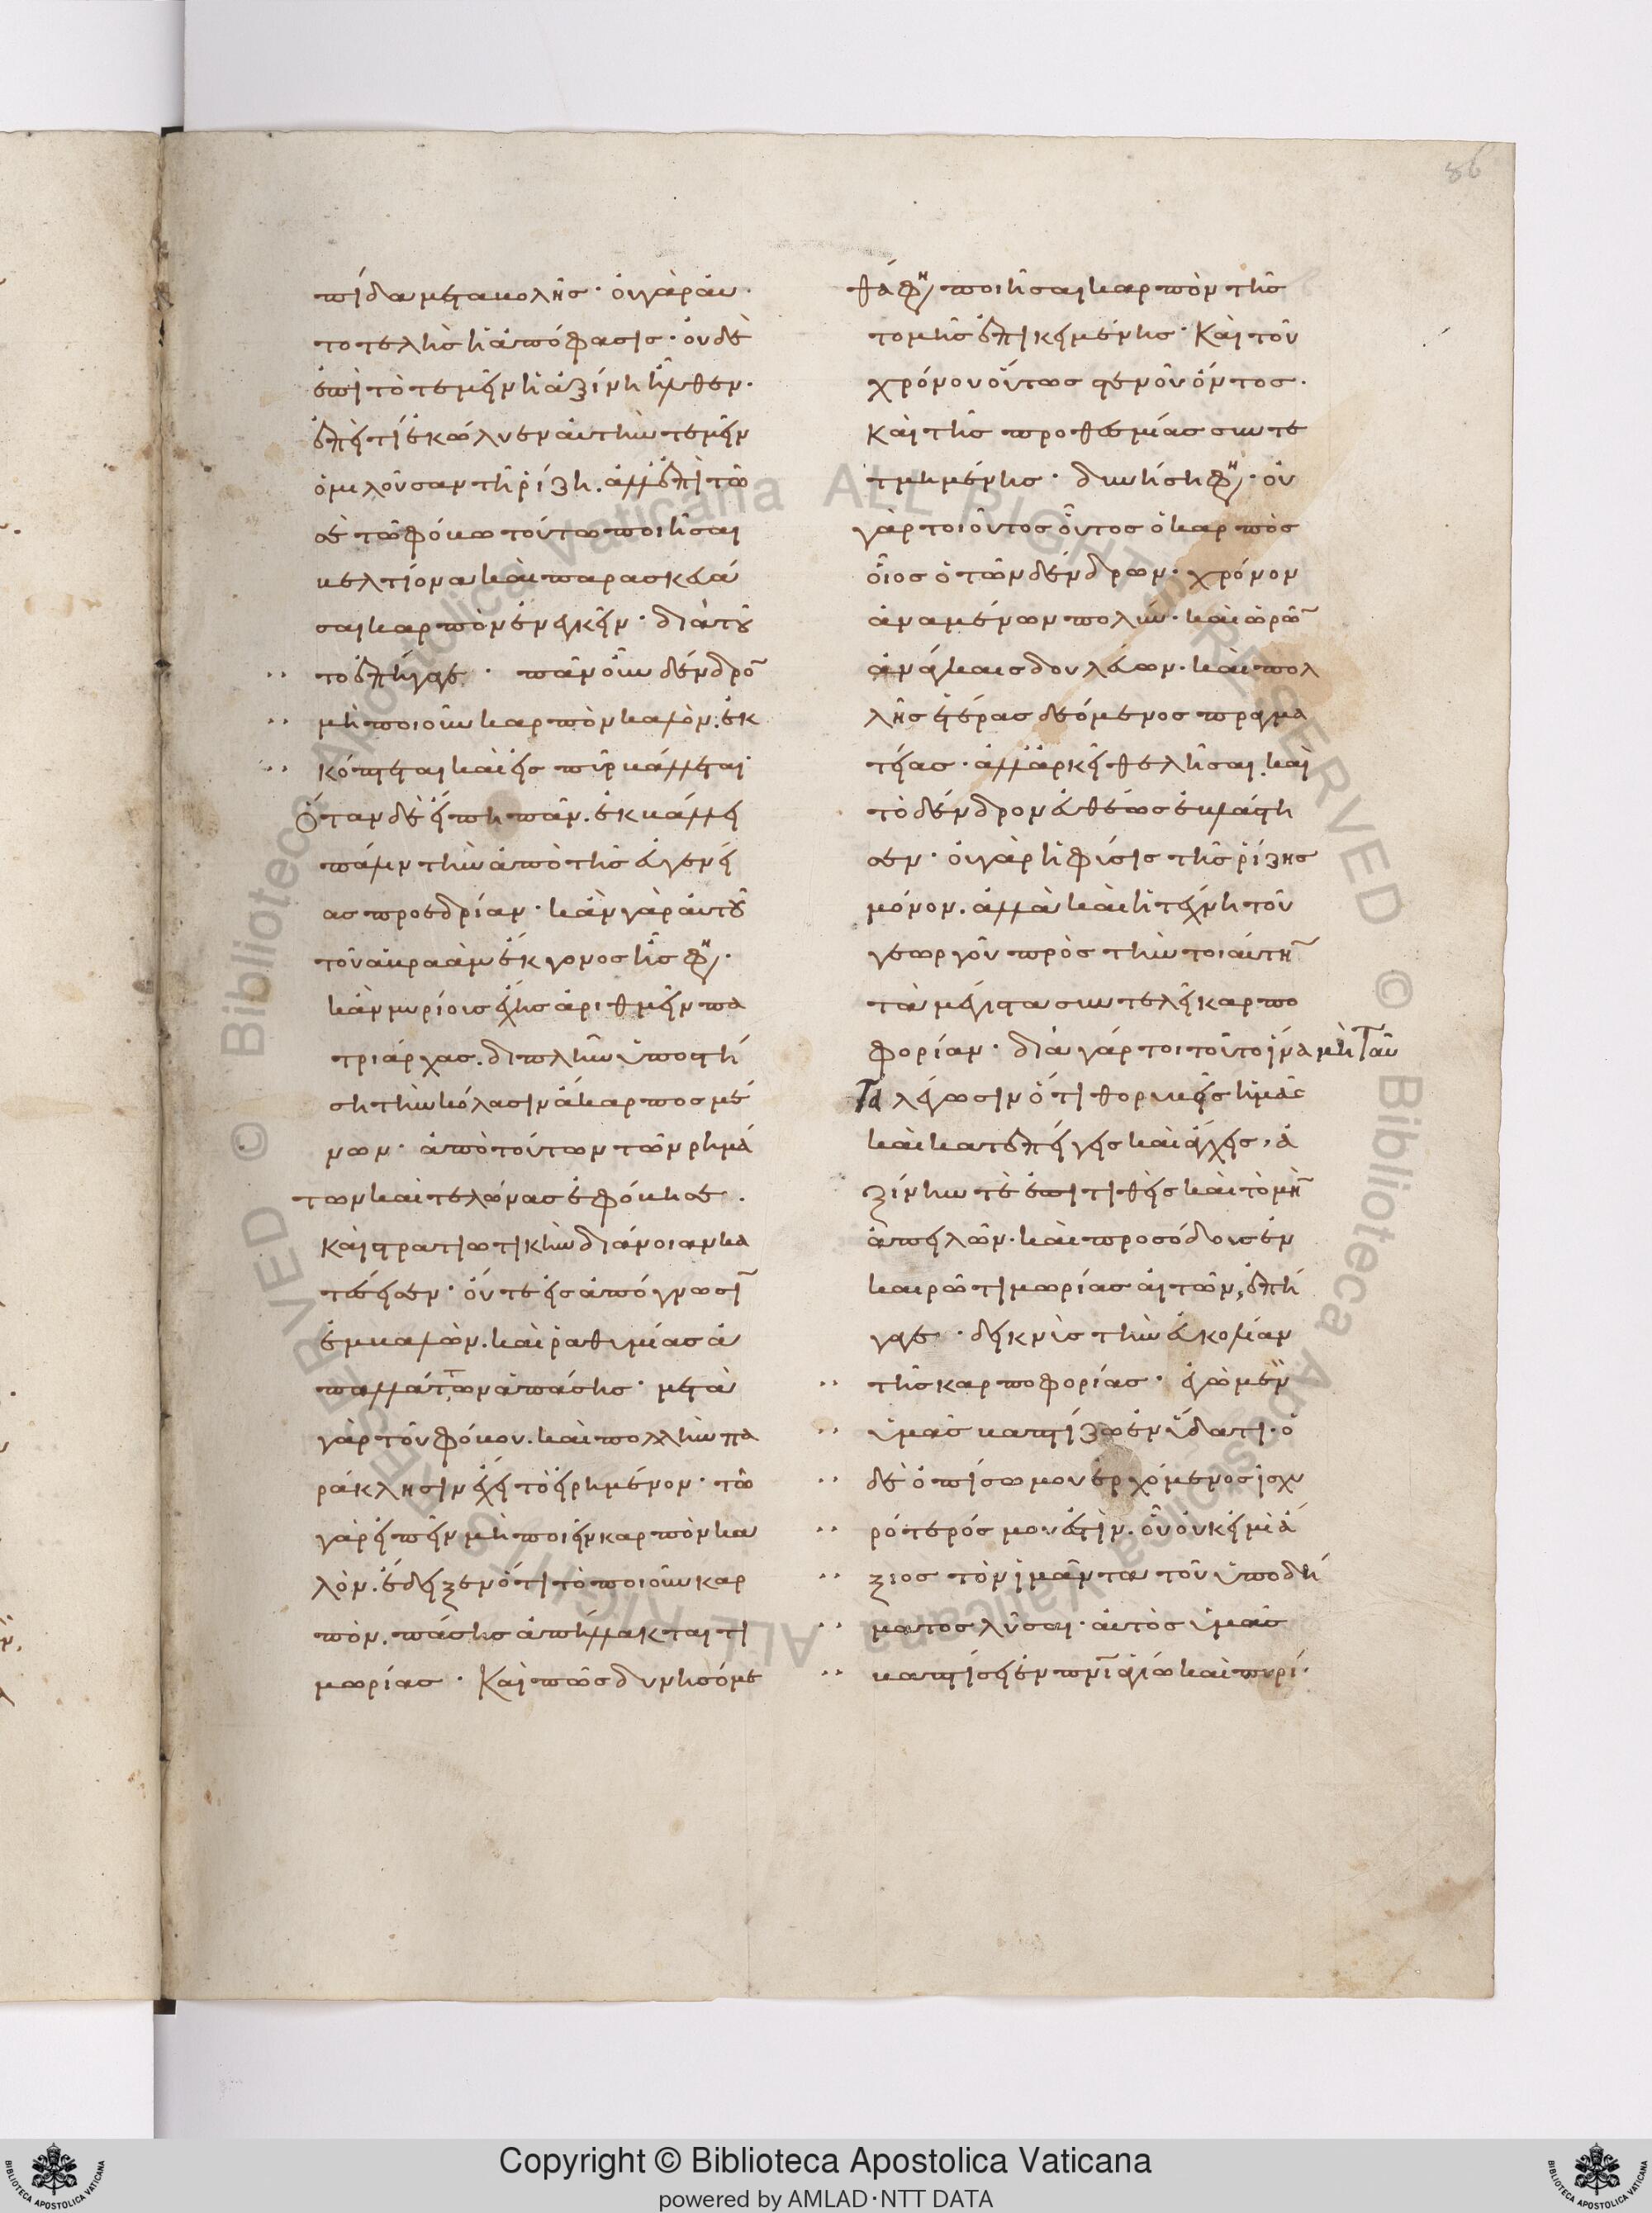 86
πίδα μεταβολῆς · οὐ γὰρ αὐ
τοτελὴς ἡ ἀπόφασις · οὐδὲ
ἐπὶ τὸ τεμεῖν ἡ ἀξίνη ἦλθεν ·
ἐπεὶ τί ἐκώλυσεν αὐτὴν τεμεῖν
ὁμιλοῦσαν τῇ ῥίζῃ . ἀλλ' ἐπὶ τῶ
σὲ τῶ φόβω τούτω ποιῆσαι
βελτίονα καὶ παρασκευά
σαι καρπὸν ἐνεγκεῖν · διὰ τȣ
το ἐπήγαγε · πᾶν οὖν δένδρο̅
μὴ ποιοῦν καρπὸν καλὸν . ἐκ
κόπτεται καὶ εἰς πῦρ βάλλεται·
Ὅταν δὲ εἴπη πᾶν . ἐκβάλλει
πάλιν τὴν ἀπὸ τῆς εὐγενεί
ας προεδρίαν · κἂν γὰρ αὐτȣ
τοῦ ἀβραὰμ ἔκγονος ἦς φη ·
κἂν μυρίους ἔχης ἀριθμεῖν πα
τριάρχας . διπλῆν ὑποστή
ση τὴν κόλασιν ἄκαρπος μέ
νων · ἀπὸ τούτων τῶν ρημά
των καὶ τελώνας ἐφόβησε .
Καὶ στρατιωτικὴν διάνοιαν κα
τέσεισεν · οὔτε εἰς ἀπόγνωσι̅
ἐμβαλὼν . καὶ ῥαθυμίας ἀ
παλλάττων ἁπάσης · μετὰ
γὰρ τοῦ φόβου . καὶ πολλὴν πα
ράκλησιν ἔχει τὸ εἰρημένον · τῶ
γὰρ εἰπεῖν μὴ ποιεῖν καρπὸν κα
λὸν . ἔδειξεν ὅτι τὸ ποιοῦν καρ
πὸν . πάσης ἀπήλλακται τι
μωρίας · Καὶ πῶς δυνησόμε
θά φη ποιῆσαι καρπὸν τῆς
τομῆς ἐπικειμένης · Καὶ τοῦ
χρόνου οὕτως στενοῦ ὄντος ·
Καὶ τῆς προθεσμίας συντε
τμημένης · δυνήση φη · οὐ
γὰρ τοιοῦτος οὗτος ὁ καρπὸς
οἷος ὁ τῶν δένδρων · χρόνον
ἀναμένων πολύν · καὶ ὡρῶ̅
ἀνάγκαις δουλεύων · καὶ πολ
λῆς ἑτέρας δεόμενος πραγμα
τείας · ἀλλ' ἀρκεῖ θελῆσαι . καὶ
τὸ δένδρον εὐθέως ἐβλάστη
σεν · οὐ γὰρ ἡ φύσις τῆς ῥίζης
μόνον . ἀλλὰ καὶ ἡ τέχνη τοῦ
γεωργοῦ πρὸς τὴν τοιαύτη̅
τὰ μέγιστα συντελεῖ καρπο
φορίαν · διὰ γάρ τοι τοῦτο ἵνα μὴ ταῦ
τα λέγωσιν ὅτι θορυβεῖς ἡμᾶς
καὶ κατεπείγεις καὶ ἄγχεις , ἀ
ξίνην τὲ ἐπιτιθεὶς καὶ τομὴ̅
ἀπειλῶν . καὶ προσόδους ἐν
καιρῶ τιμωρίας αἰτῶν , ἐπή
γαγε · δεικνὺς τὴν εὐκολίαν
τῆς καρποφορίας · ἐγὼ μὲν
ὑμᾶς βαπτίζω ἐν ὕδατι · ὁ
δὲ ὀπίσω μου ἐρχόμενος ἰσχυ
ρότερός μου ἐστὶν . οὗ οὐκ εἰμὶ ἄ
ξιος τὸν ἱμάντα τοῦ ὑποδή
ματος λῦσαι · αὐτὸς ὑμᾶς
βαπτίσει ἐν πνι̅ ἁγίω καὶ πυρί ·
© Biblioteca Apostolica Vaticana ALL RIGHTS RESERVED © Biblioteca Apostolica Vaticana ALL RIGHTS RESERVED
Copyright © Biblioteca Apostolica Vaticana
powered by AMLAD·NTT DATA
BIBLIOTECA APOSTOLICA VATICANA
BIBLIOTECA APOSTOLICA VATICANA